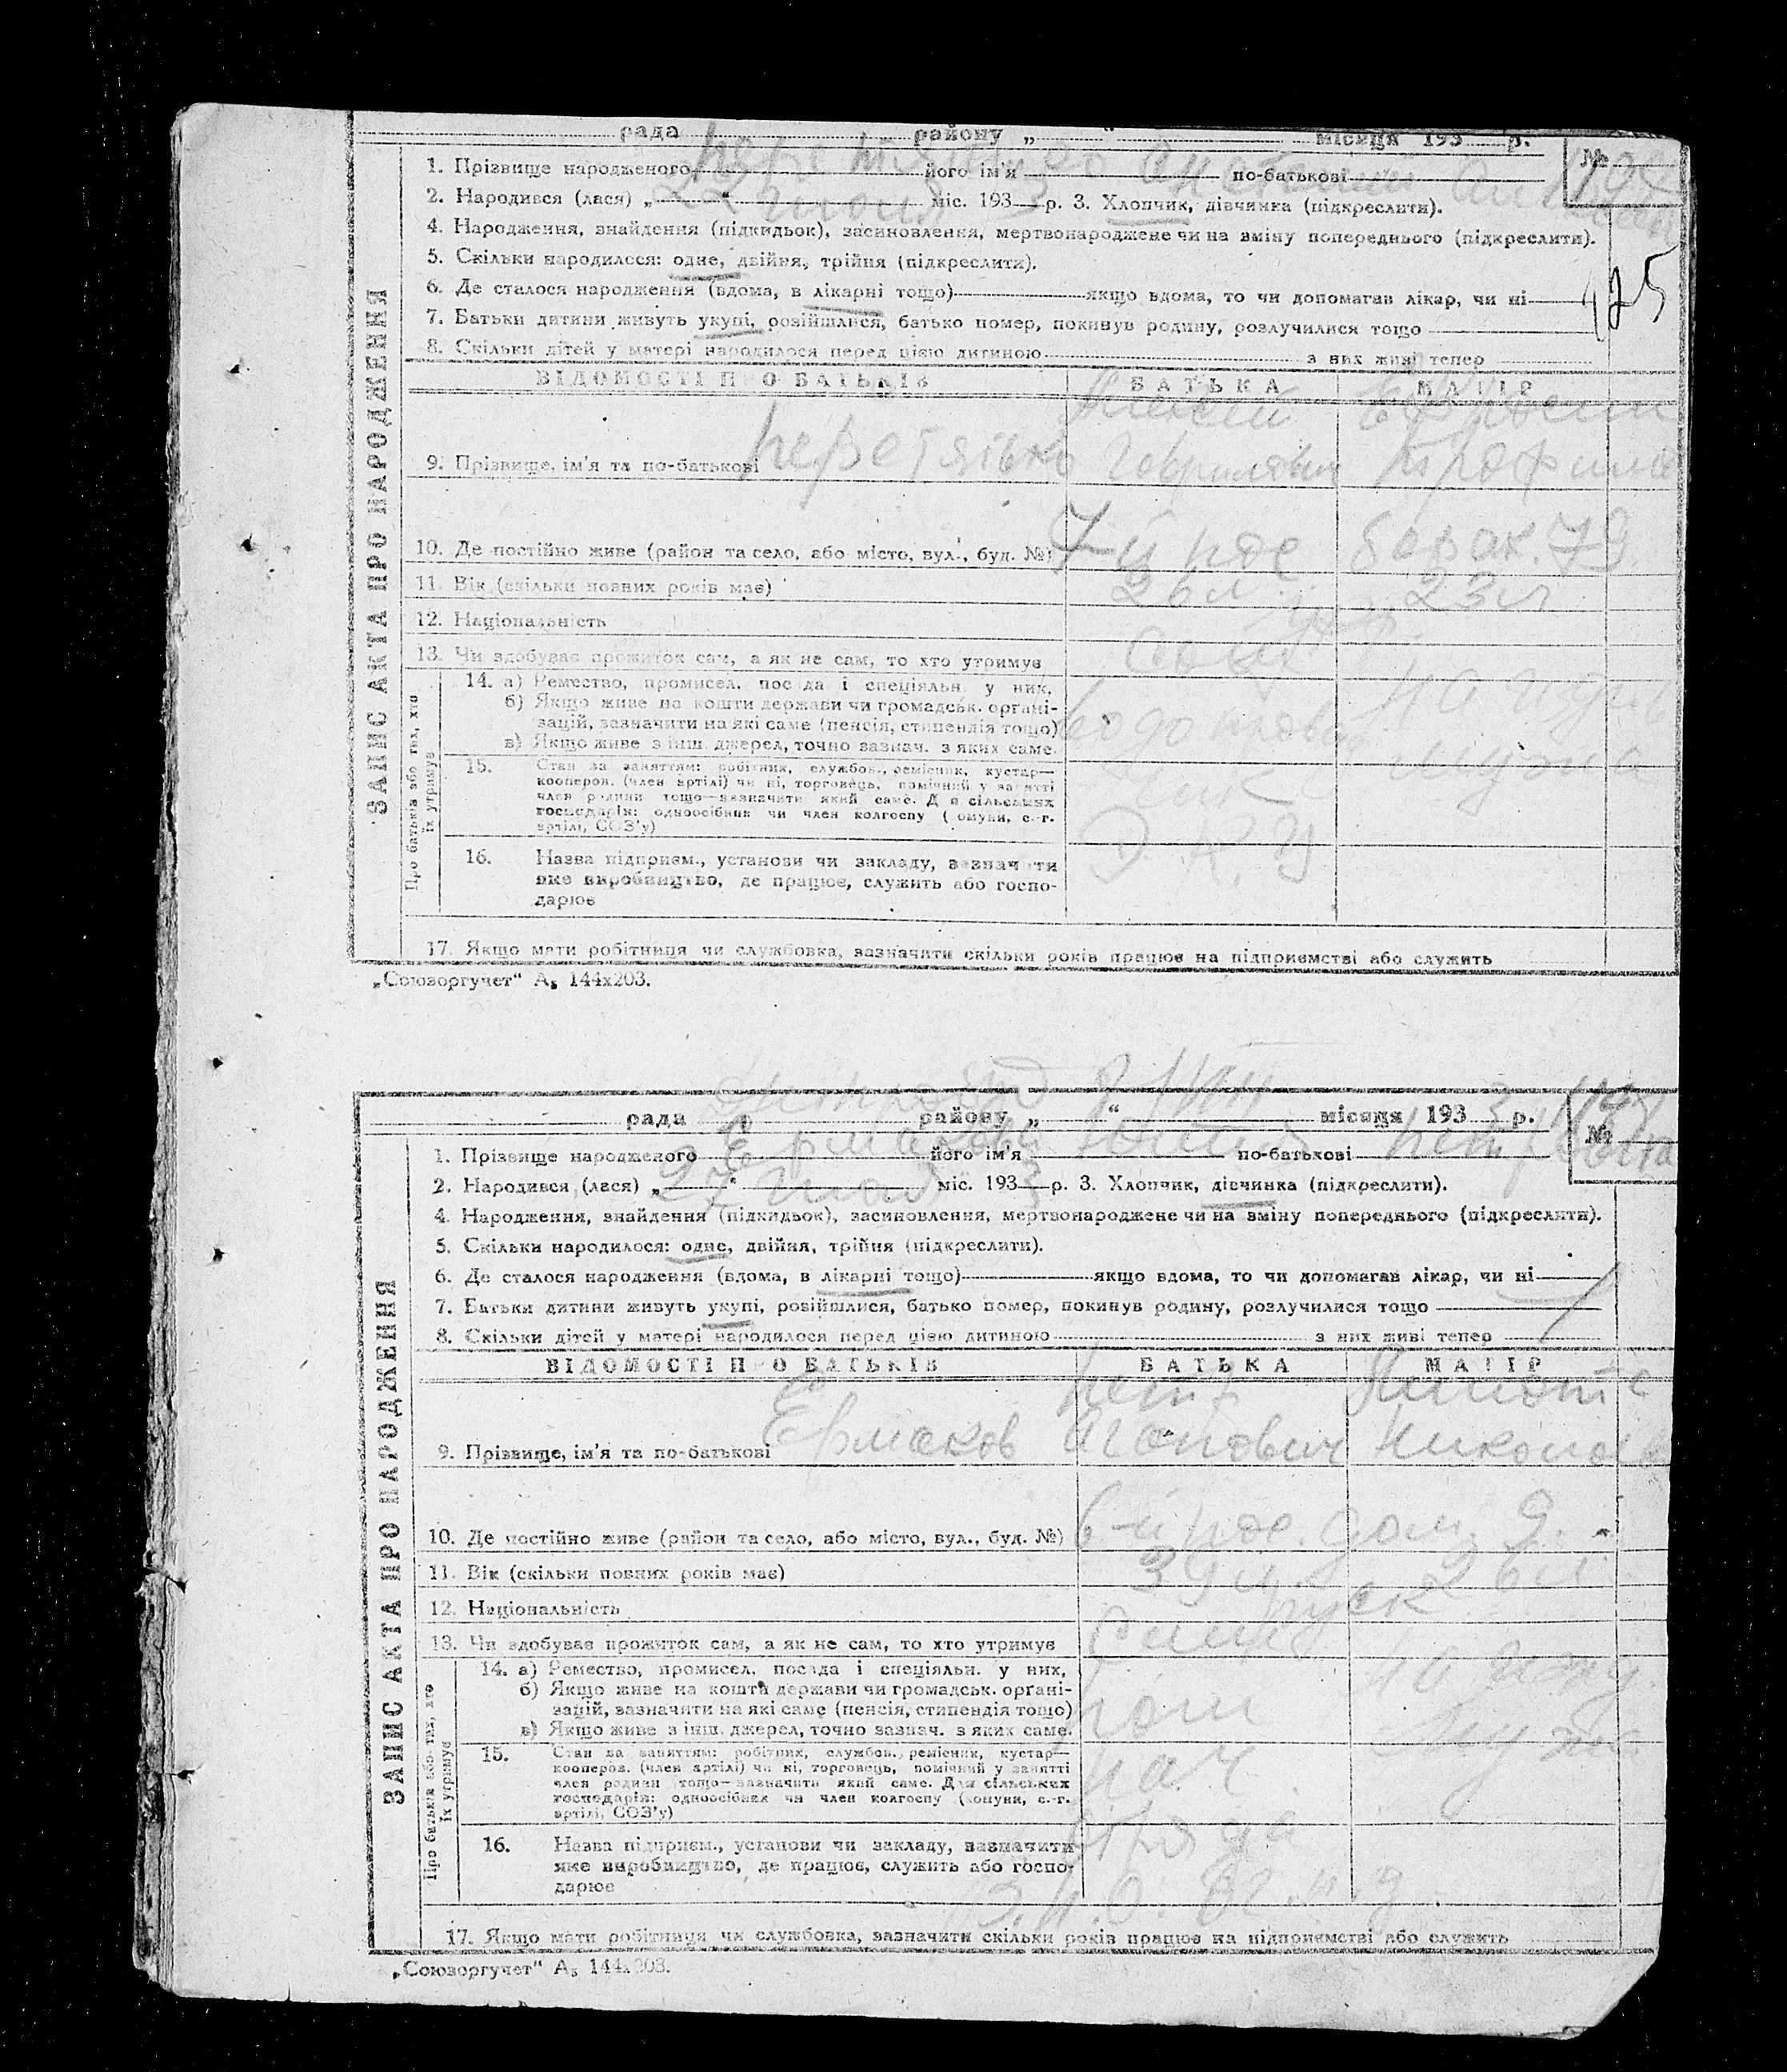 рада району „ “ місяця 193 р.
№
1. Прізвище народженого його ім'я по-батькові
2. Народився (лася) „22“ июня міс. 1933 р. 3. Хлопчик, дівчинка (підкреслити).
4. Народження, знайдення (підкидьок), засиновлення, мертвонароджене чи на зміну попереднього (підкреслити).
5. Скільки народилося: одне, двійня, трійня (підкреслити).
6. Де сталося народження (вдома, в лікарні тощо) якщо вдома, то чи допомагав лікар, чи ні
7. Батьки дитини живуть укупі, розійшлися, батько помер, покинув родину, розлучилися тощо
8. Скільки дітей у матері народилося перед цією дитиною з них живі тепер
ВІДОМОСТІ ПРО БАТЬКІВ БАТЬКА МАТІР
9. Прізвище, ім'я та по-батькові Перетятько
10. Де постійно живе (район та село, або місто, вул., буд. №) 7-й пос. барак. 79
11. Вік (скільки повних років має) 26 л 23 л
12. Національність укр.
13. Чи здобуває прожиток сам, а як не сам, то хто утримує
14. а) Ремество, промисел. посада і спеціяльн. у них,
б) Якщо живе на кошти держави чи громадськ. орґані-
зацій, зазначити на які саме (пенсія, стипендія тощо)
в) Якщо живе з інш. джерел, точно зазнач. з яких саме.
на иждив
мужа
15. Стан за заняттям: робітник, службов., ремісник, кустар—
кооперов. (член артілі) чи ні, торговець, помічний у занятті
член родини тощо—зазначити який саме. Для сільських
господарів: одноосібник чи член колгоспу (комуни, с.-г.
артілі, СОЗ'у)
16. Назва підприєм., установи чи закладу, зазначити
яке виробництво, де працює, служить або госпо-
дарює
17. Якщо мати робітниця чи службовка, зазначити скільки років працює на підприємстві або служить
ЗАПИС АКТА ПРО НАРОДЖЕННЯ
Про батьків або тих, хто
їх утримує
„Союзоргучет“ А₅ 144х203.
125
рада району „ “ місяця 1933 р.
№
1. Прізвище народженого Ермакова його ім'я по-батькові Петровна
2. Народився (лася) „27“ міс. 1933 р. 3. Хлопчик, дівчинка (підкреслити).
4. Народження, знайдення (підкидьок), засиновлення, мертвонароджене чи на зміну попереднього (підкреслити).
5. Скільки народилося: одне, двійня, трійня (підкреслити).
6. Де сталося народження (вдома, в лікарні тощо) якщо вдома, то чи допомагав лікар, чи ні
7. Батьки дитини живуть укупі, розійшлися, батько помер, покинув родину, розлучилися тощо
8. Скільки дітей у матері народилося перед цією дитиною з них живі тепер
ВІДОМОСТІ ПРО БАТЬКІВ БАТЬКА МАТІР
Петр
9. Прізвище, ім'я та по-батькові Ермаков
10. Де постійно живе (район та село, або місто, вул., буд. №) 6-й пос. дом. 9.
11. Вік (скільки повних років має) 39 л. 26 л.
12. Національність руск
13. Чи здобуває прожиток сам, а як не сам, то хто утримує
14. а) Ремество, промисел. посада і спеціяльн. у них,
б) Якщо живе на кошти держави чи громадськ. орґані-
зацій, зазначити на які саме (пенсія, стипендія тощо)
в) Якщо живе з інш. джерел, точно зазнач. з яких саме.
на ижд.
мужа
15. Стан за заняттям: робітник, службов., ремісник, кустар—
кооперов. (член артілі) чи ні, торговець, помічний у занятті
член родини тощо—зазначити який саме. Для сільських
господарів: одноосібник чи член колгоспу (комуни, с.-г.
артілі, СОЗ'у)
нач.
отряда
16. Назва підприєм., установи чи закладу, зазначити
яке виробництво, де працює, служить або госпо-
дарює
17. Якщо мати робітниця чи службовка, зазначити скільки років працює на підприємстві або служить
ЗАПИС АКТА ПРО НАРОДЖЕННЯ
Про батьків або тих, хто
їх утримує
„Союзоргучет“ А₅ 144х203.